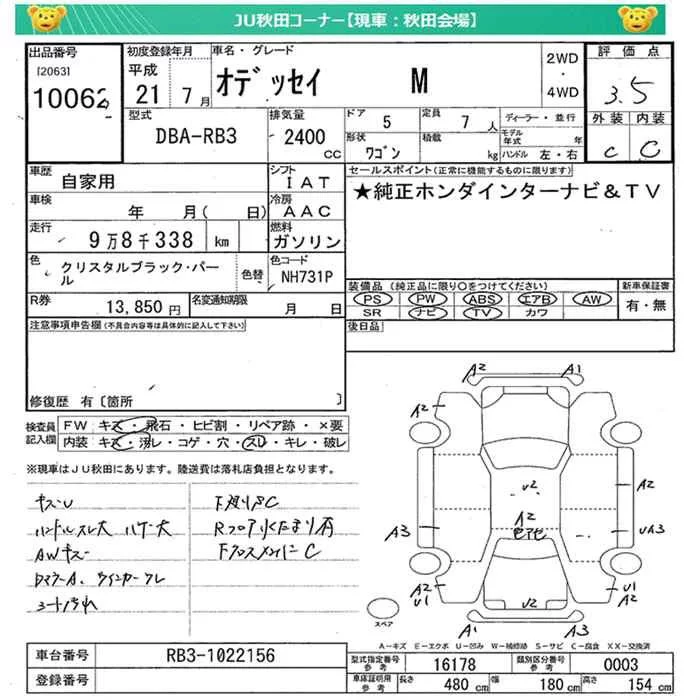 JU秋田コーナー【現車：秋田会場】
出品番号
[2063]
10062
初度登録年月
平成
21 7月
車名・グレード
オデッセイ M
2WD
・
4WD
評価点
3.5
外装 内装
C C
型式
DBA-RB3
排気量
2400
CC
ドア 5
定員 7人
形状 ワゴン
積載 kg
ディーラー・並行
モデル年式 年
ハンドル 左・右
車歴 自家用
シフト IAT
車検 年 月( 日)
冷房 AAC
走行 9万8千338 km
燃料 ガソリン
色 クリスタルブラック・パール
色替
色コード NH731P
R券 13,850円
名変通知期限 月 日
セールスポイント(正常に機能するものに限ります)
★純正ホンダインターナビ&TV
装備品(純正品に限り○をつけてください)
新車保証書
PS PW ABS エアB AW
有・無
SR ナビ TV カワ
後日品
注意事項申告欄(不具合内容等は具体的に記入して下さい)
修復歴 有〔箇所 〕
検査員記入欄
FW: キズ・飛石・ヒビ割・リペア跡・×要
内装: キズ・汚レ・コゲ・穴・スレ・キレ・破レ
※現車はJU秋田にあります。陸送費は落札店負担となります。
キズU
ハンドルスレ大 ハゲ大
AWキズ
シート汚れ
下廻りSC
A2 A1
A2
U2
A2
A2
A3
UA3
A2
U1
U2
A2
U1
A1 A3
スペア
A-キズ E-エクボ U-凹み W-補修跡 S-サビ C-腐食 XX-交換済
車台番号 RB3-1022156
登録番号
型式指定番号 参考 16178
類別区分番号 参考 0003
車庫証明用 参考 長さ 480cm 幅 180cm 高さ 154cm